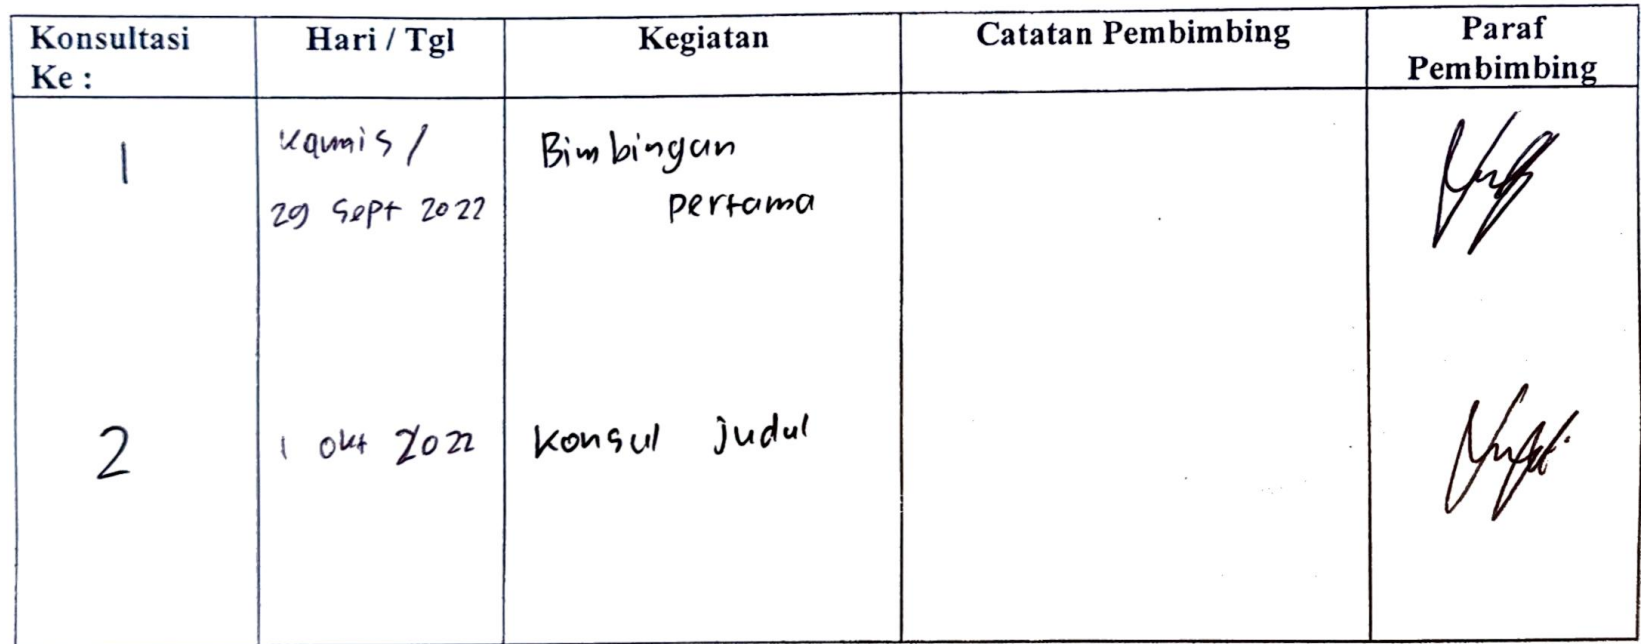 Konsultasi Ke :
Hari / Tgl
Kegiatan
Catatan Pembimbing
Paraf Pembimbing
1
Kamis /
29 Sept 2022
Bimbingan
pertama
2
1 Okt 2022
Konsul judul